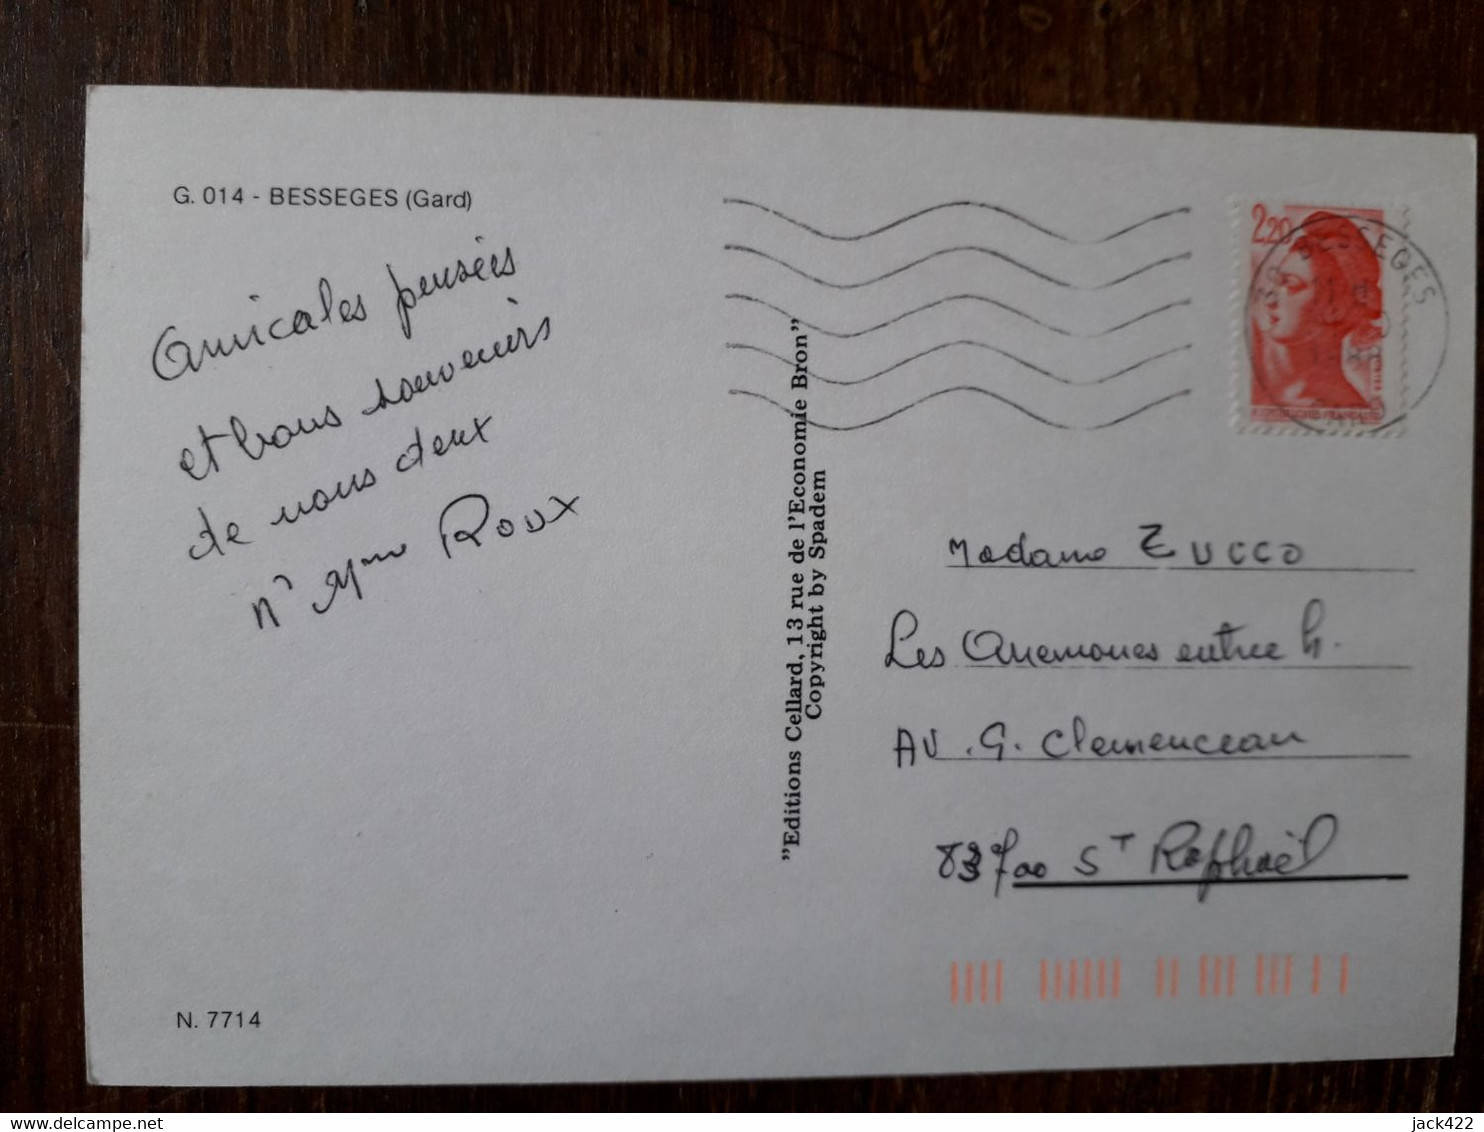 G. 014 - BESSEGES (Gard)
Amicales pensées
et bons souvenirs
de nous deux
Mme Roux
N. 7714
"Editions Cellard, 13 rue de l'Economie Bron"
Copyright by Spadem
2,20
30 BESSEGES
REPUBLIQUE FRANÇAISE
Madame ZUCCO
Les Anemones entree h.
AV. G. Clemenceau
83700 ST Raphaël
delcampe.net
jack422